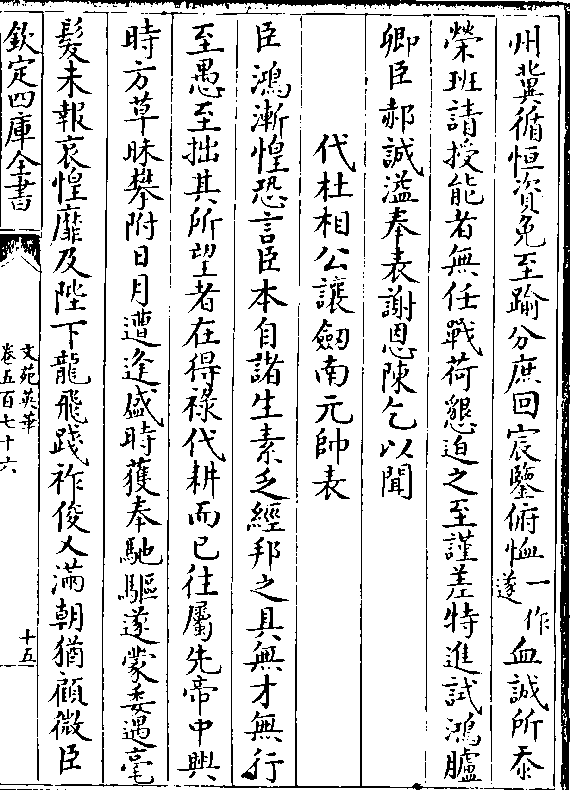 州冀循恒資免至踰分庶回宸鑒俯恤一作遂血誠所忝
榮班請授能者無任戰荷懇迫之至謹差特進試鴻臚
卿臣郝誠溢奉表謝恩陳乞以聞
代杜相公讓劒南元帥表
臣鴻漸惶恐言臣本自諸生素乏經邦之具無才無行
至愚至拙其所望者在得禄代耕而已往屬先帝中興
時方草昧攀附日月遭逢盛時獲奉馳驅遂蒙委遇毫
髮未報哀惶靡及陛下龍飛踐祚俊乂滿朝猶顧微臣
欽定四庫全書
文苑英華
卷五百七十六
十五